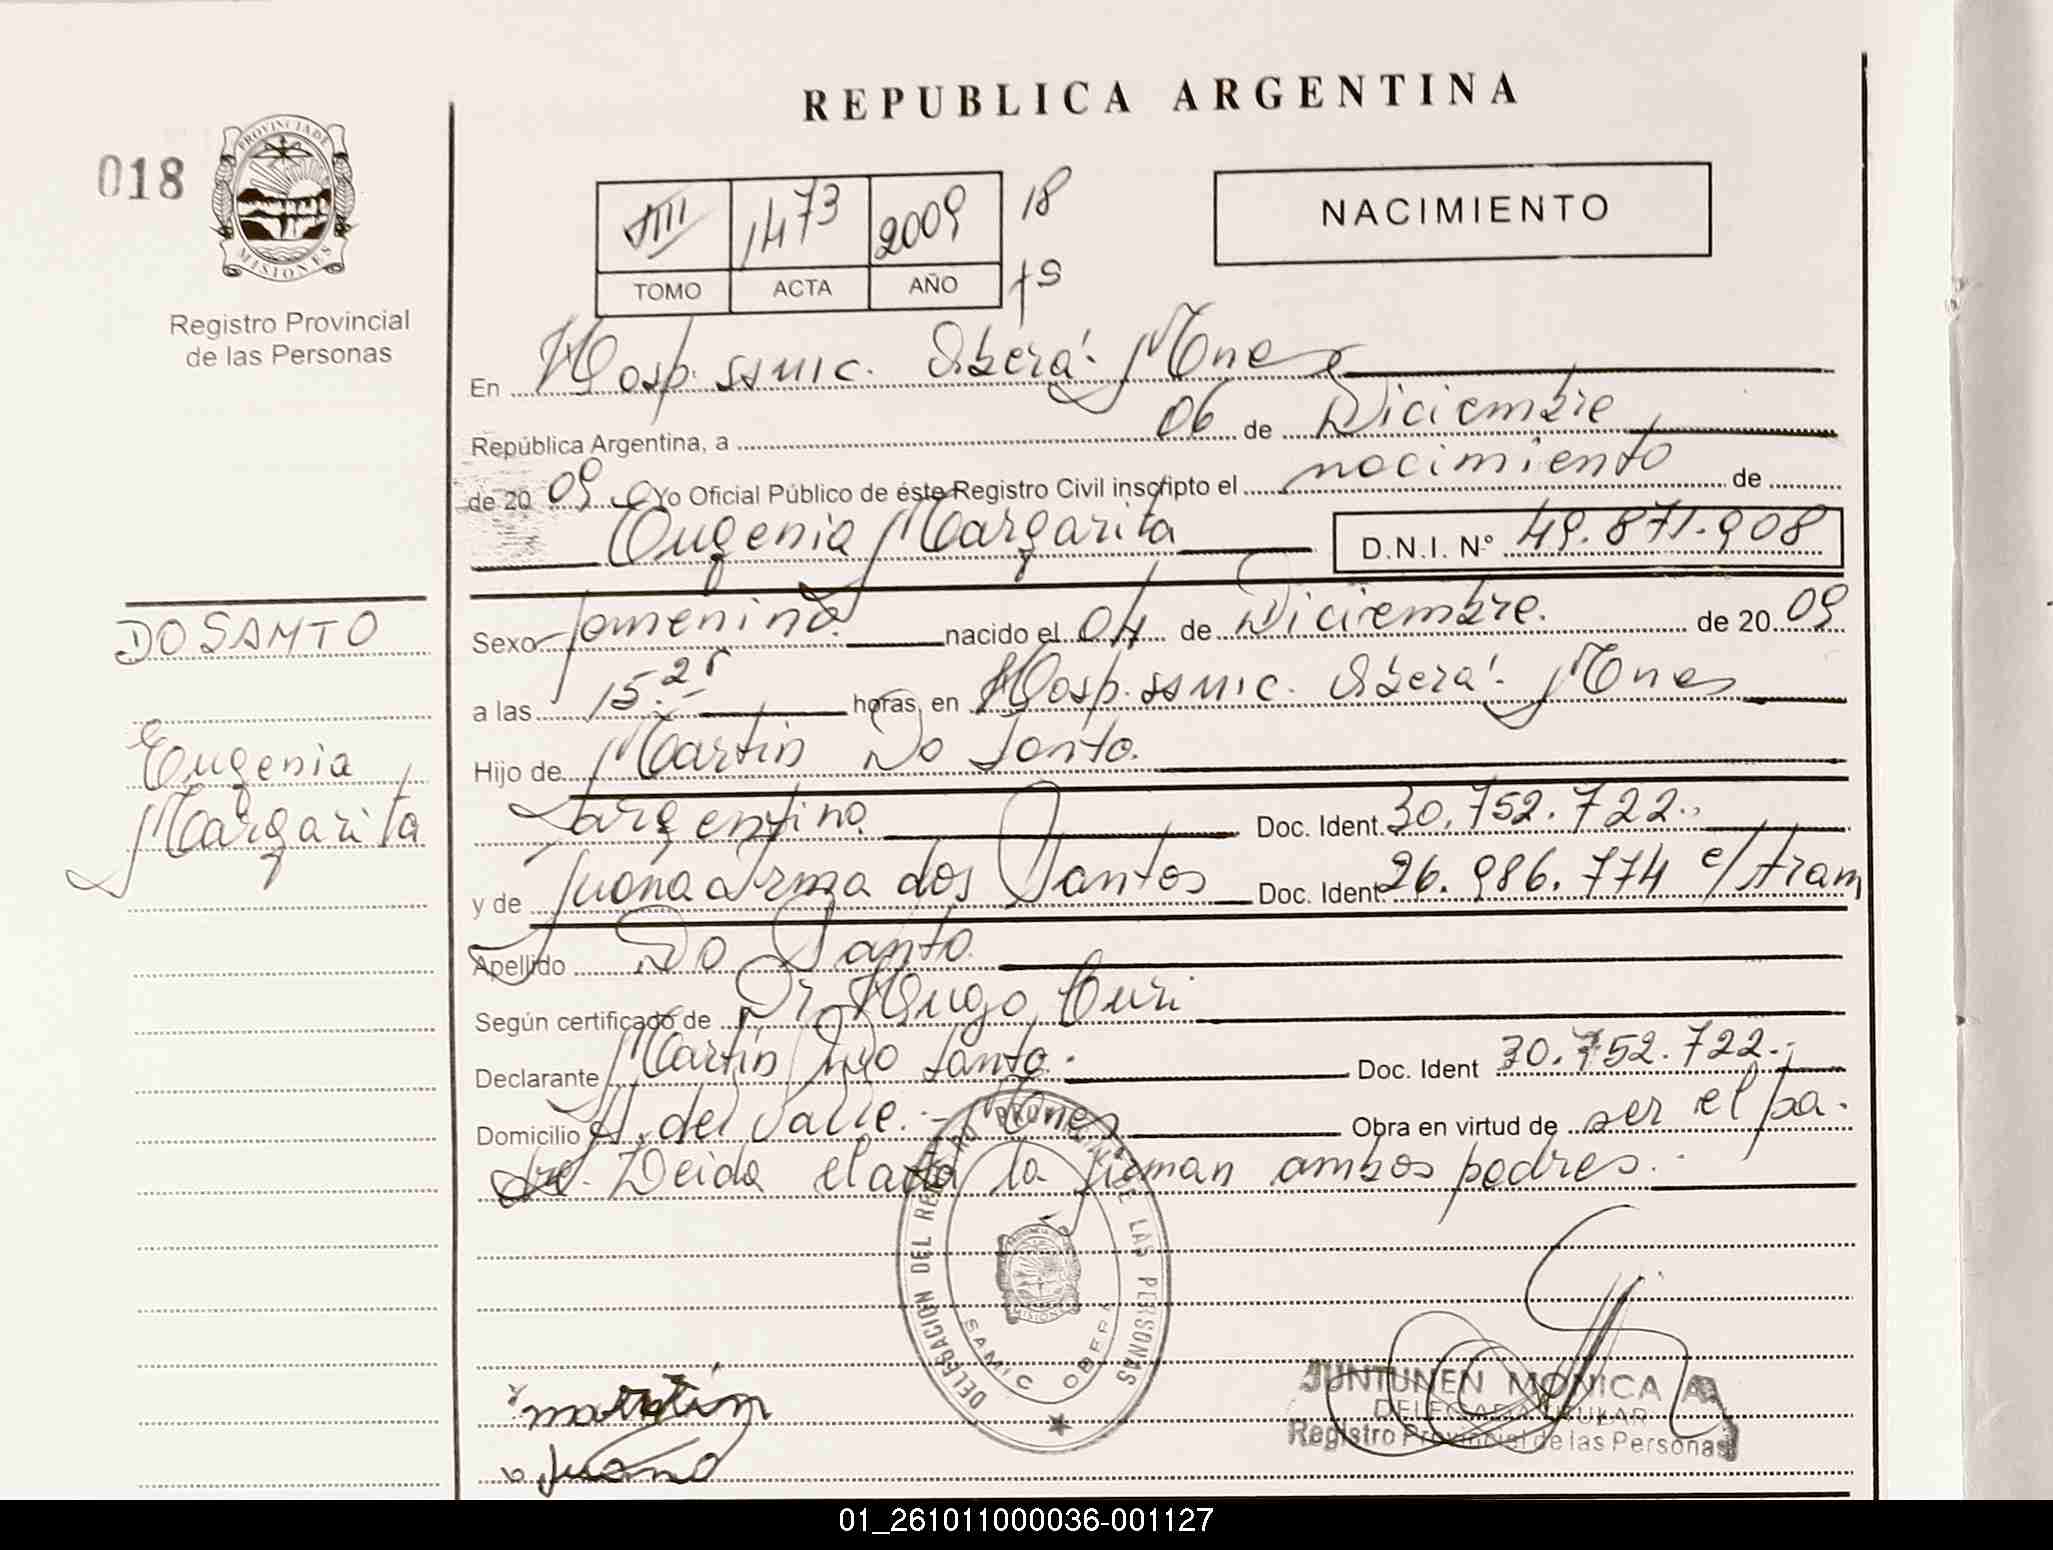 REPUBLICA ARGENTINA
018
PROVINCIA DE
MISIONES
Registro Provincial
de las Personas
1473 2009 18
TOMO ACTA AÑO
NACIMIENTO
En Hosp. SSMIC. Oberá. Mnes
República Argentina, a 06 de Diciembre
de 20 09. Yo Oficial Público de éste Registro Civil inscripto el nacimiento de
Eugenia Margarita D.N.I. Nº 49.871.908
DO SAMTO
Eugenia
Margarita
Sexo femenino. nacido el 04 de Diciembre. de 20 09
a las 15.25 horas, en Hosp. SSMIC. Oberá. Mnes
Hijo de Martin Do Santo.
Argentino. Doc. Ident. 30.752.722.
y de Juana Irma dos Santos Doc. Ident. 26.986.774 e/tram
Apellido Do Santo.
Según certificado de Dr. Hugo Curi
Declarante Martin Do Santo. Doc. Ident 30.752.722.-
Domicilio A. del Valle.- Mnes Obra en virtud de ser el pa.
dre. Leida el acta la firman ambos padres.
DELEGACION DEL REGISTRO PROVINCIAL DE LAS PERSONAS
SAMIC OBERA
MISIONES
martin
Juana
JUNTUNEN MONICA
DELEGADA TITULAR
Registro Provincial de las Personas
01_261011000036-001127